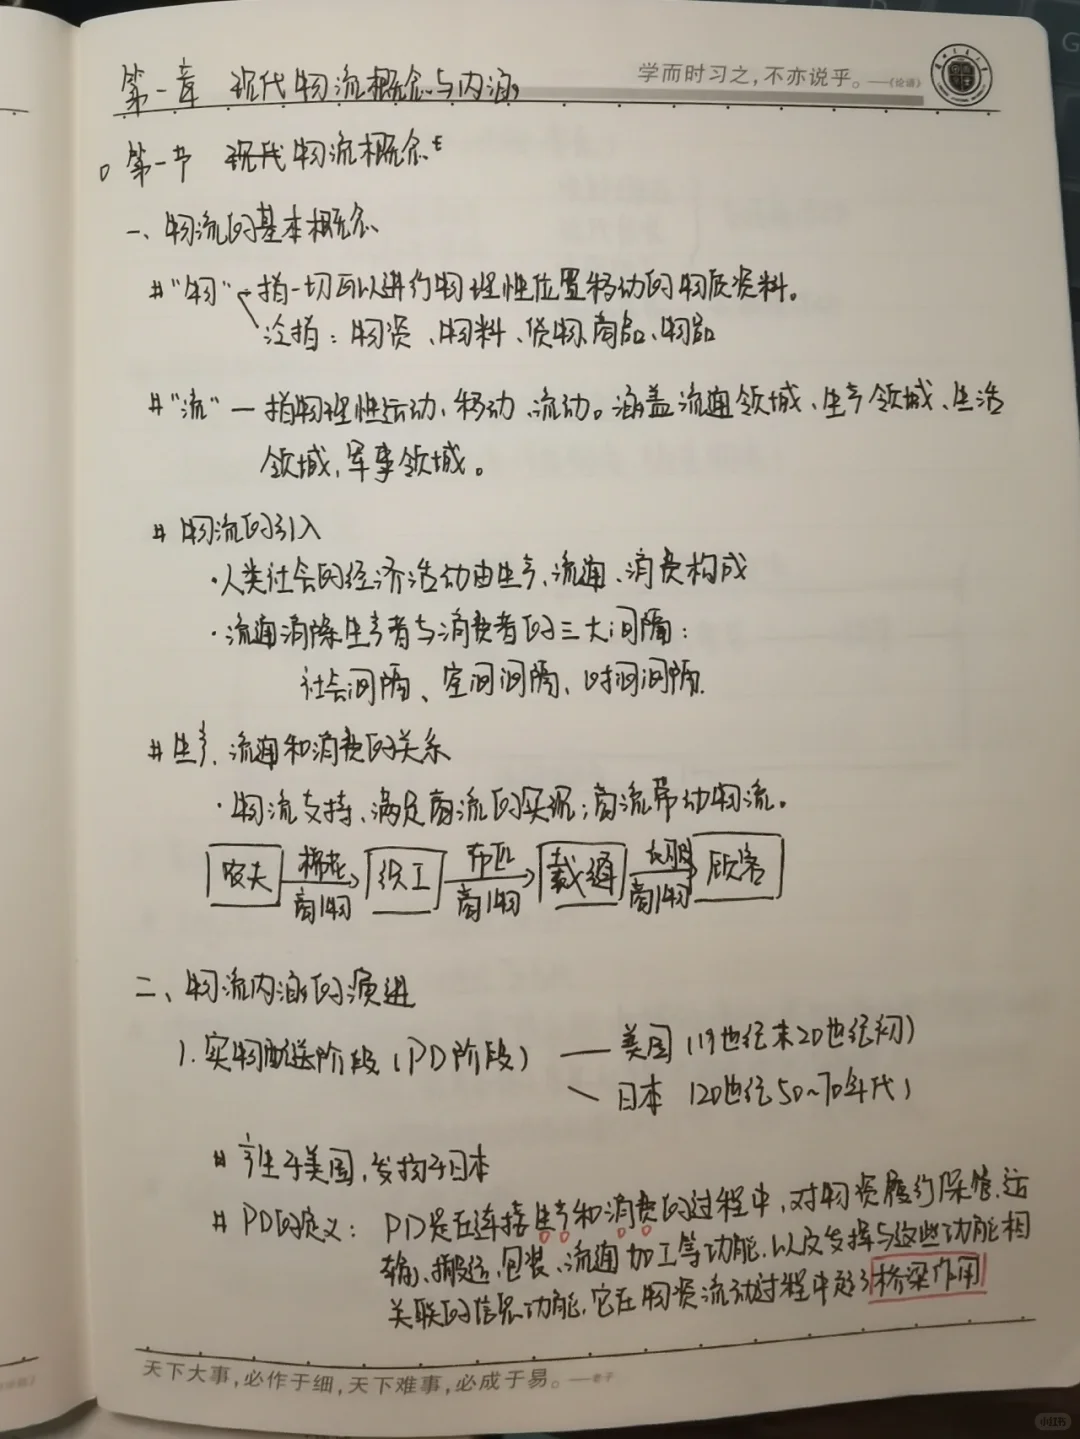 第一章 现代物流概念与内涵
学而时习之，不亦说乎。——《论语》
第一节 现代物流概念
一、物流的基本概念
#“物” 指一切可以进行物理性位置移动的物质资料。
泛指：物资、物料、货物、商品、物品
#“流” — 指物理性运动、移动、流动。涵盖流通领域、生产领域、生活
领域、军事领域。
# 物流的引入
·人类社会的经济活动由生产、流通、消费构成
·流通消除生产者与消费者的三大间隔：
社会间隔、空间间隔、时间间隔.
# 生产、流通和消费的关系
·物流支持、满足商流的实现；商流带动物流。
棉花 布匹
农夫 织工 裁缝 顾客
商|物 商|物 商|物
二、物流内涵的演进
1.实物配送阶段（PD阶段） — 美国（19世纪末20世纪初）
日本（20世纪50~70年代）
# 产生于美国，发扬于日本
# PD的定义：PD是在连接生产和消费的过程中，对物资履行保管、运
输、搬运、包装、流通加工等功能，以及发挥与这些功能相
关联的信息功能，它在物资流动过程中起了桥梁作用
天下大事，必作于细，天下难事，必成于易。——老子
小红书